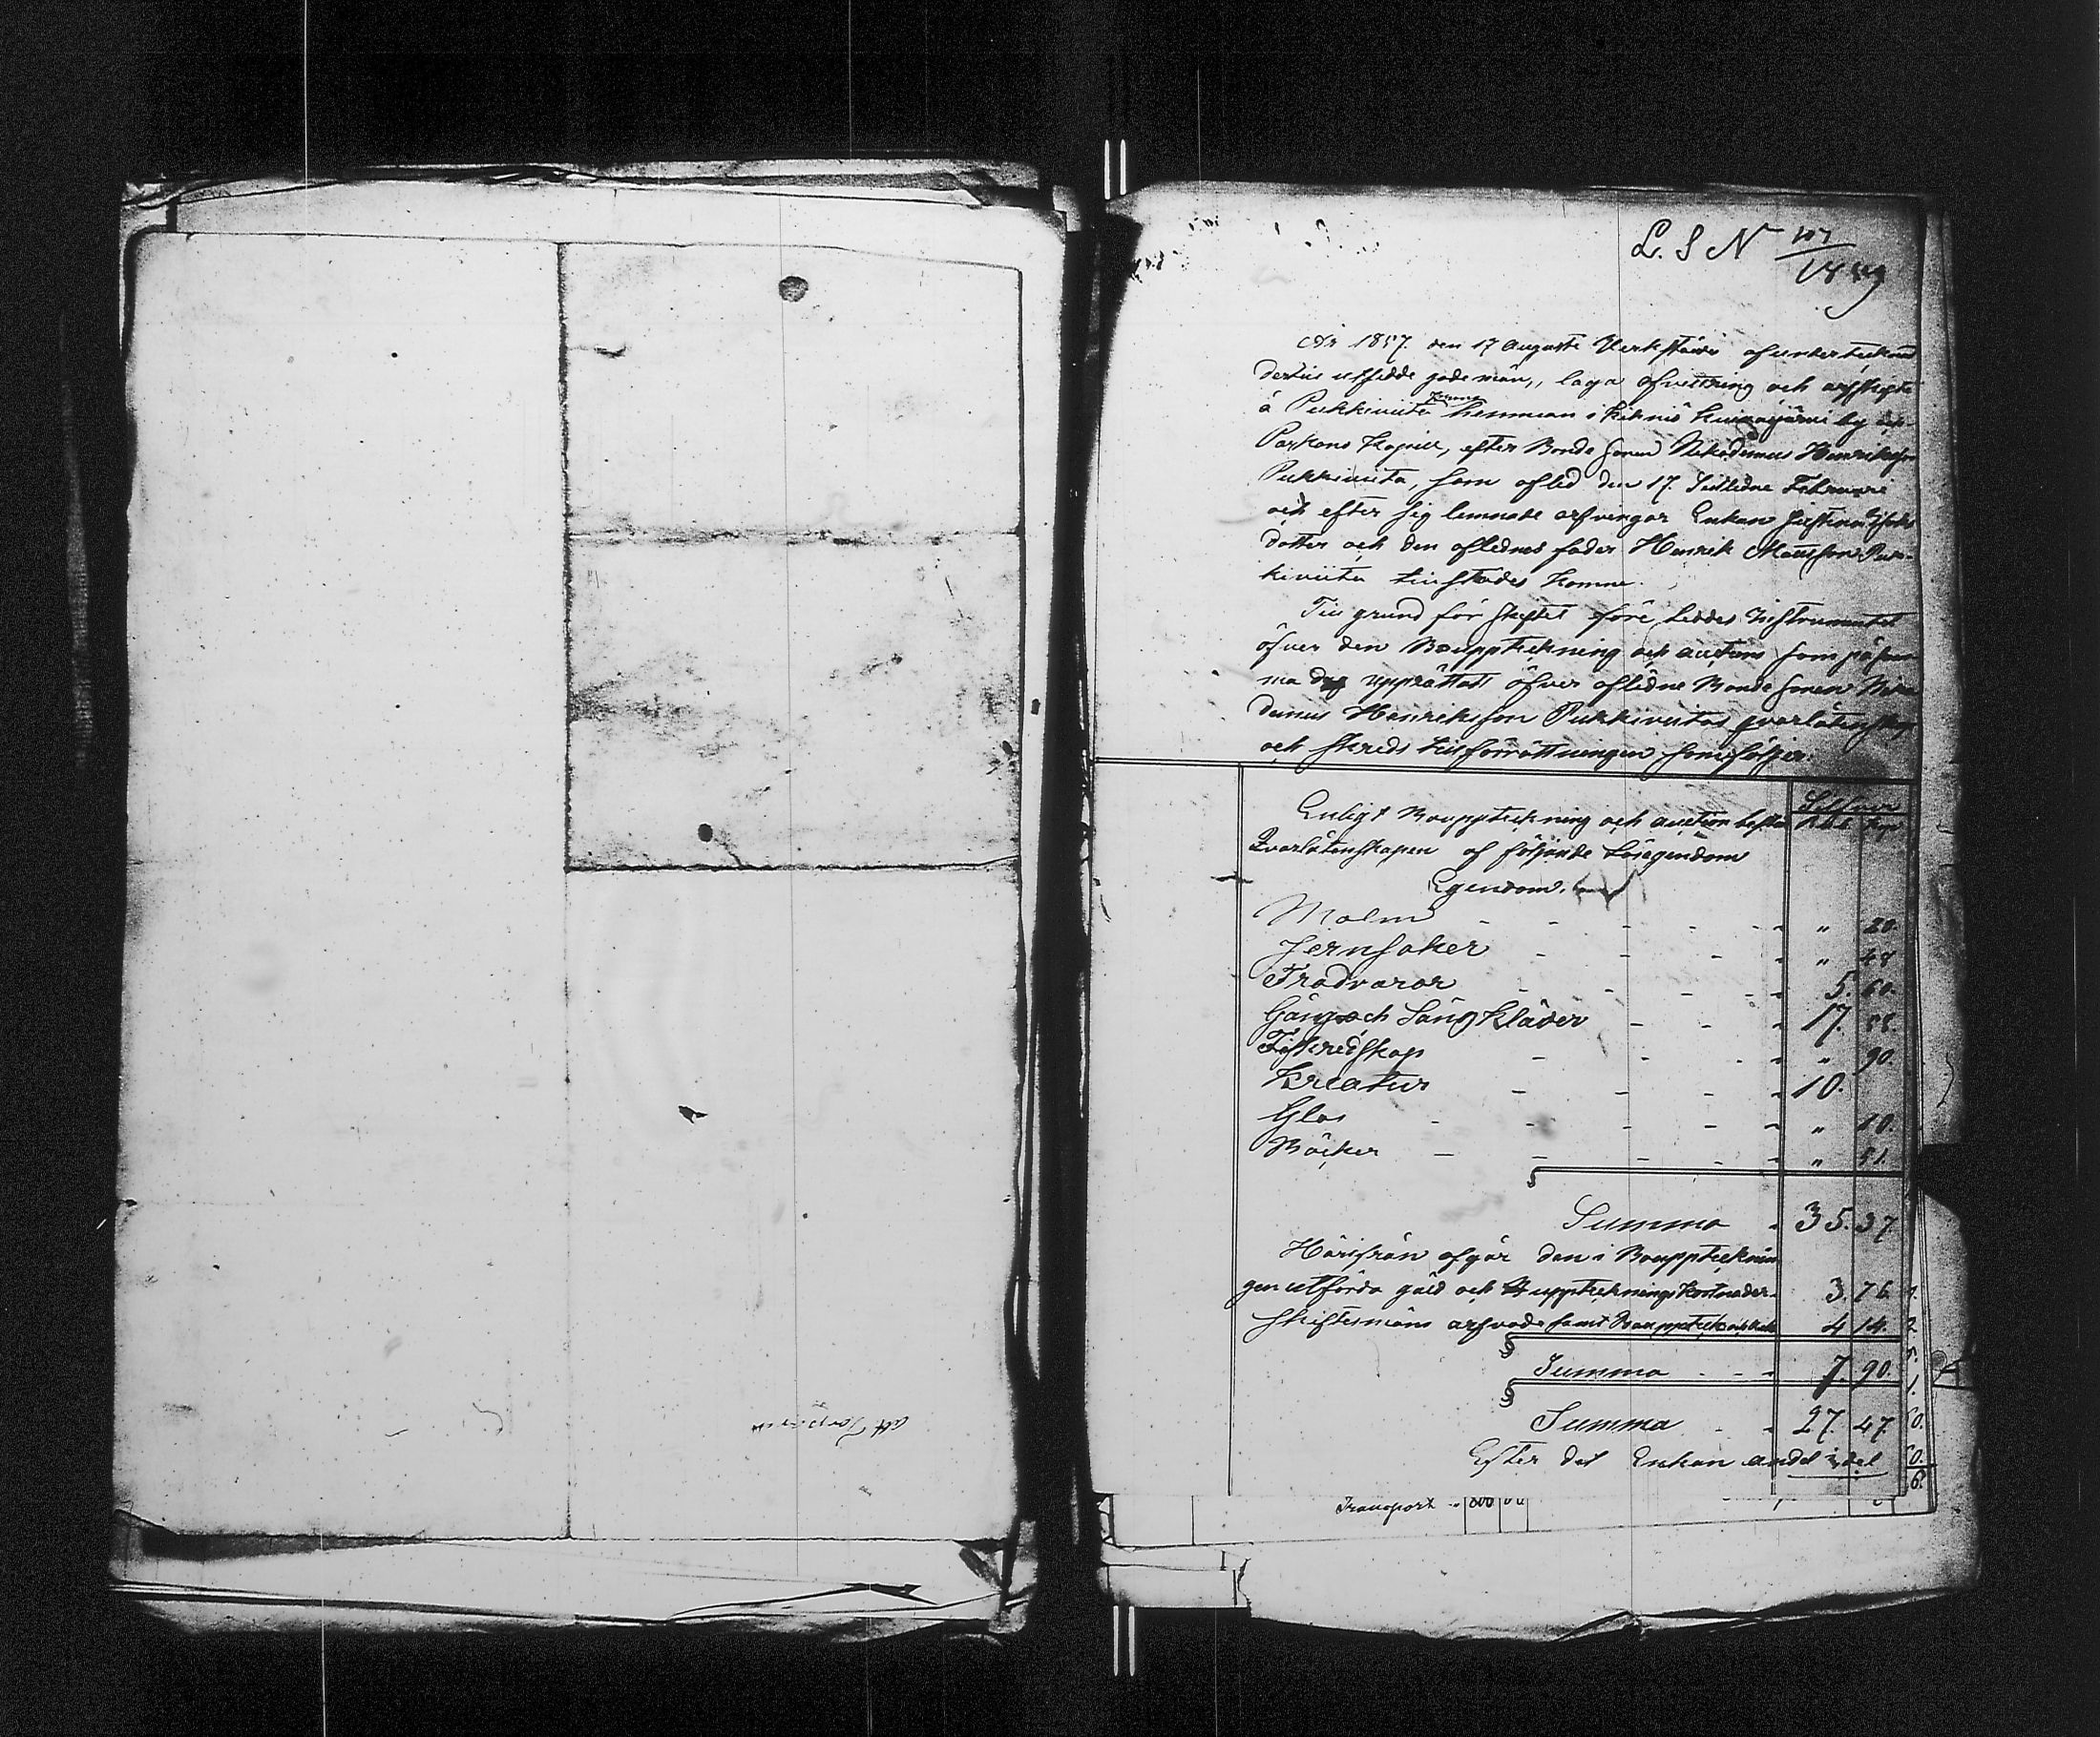 L. S N 107/1859
År 1857. den 17 Augusti Verkstäldes af undertecknad
dertill utsedde gode män, laga afvittring och arfskifte
å Pukkiviita hemman i Kihniö by
Parkano Kapell, efter Bonde sonen Nikodemus Henriksson
Pukkiviita, som afled den 17. Sistledne Februari
och efter sig lemnade arfvingar Enkan
dotter och den aflednes fader Henrik Mattsson Puk-
kiviita tillstädes komne.
Till grund för skiftet före laddes Instrumentet
öfver den Bouppteckning och auction som på sam
ma dag upprättats öfver aflidne Bonde sonen Niko
demus Henriksson Pukkiviitas qvarlåtenskap
och skreds till förrättningen som följer:
Silfver
Enligt Bouppteckning och auction bestå Rub. Kop
Qvarlåtenskapen af följande Lösegendom
Egendom.
Malm - - - - - " 20.
Jernsaker - - - - " 48
Trädvaror - - - - 5. 60.
Gång och Sängkläder - - - 17. 58.
Fiskredskap - - - - " 90.
Kreatur - - - - 10.
Glas - - - - - " 10.
Böcker - - - - - " 51.
Summa - 35. 37.
Härifrån afgår den i Boupptecknin
gen utförda gäld och uppteckningskostnader - 3. 76.
skiftesmäns arfvode samt 4 14.
Summa - - - 7. 90.
Summa - - 27. 47.
Efter det Enkan andel ½ del
Transport